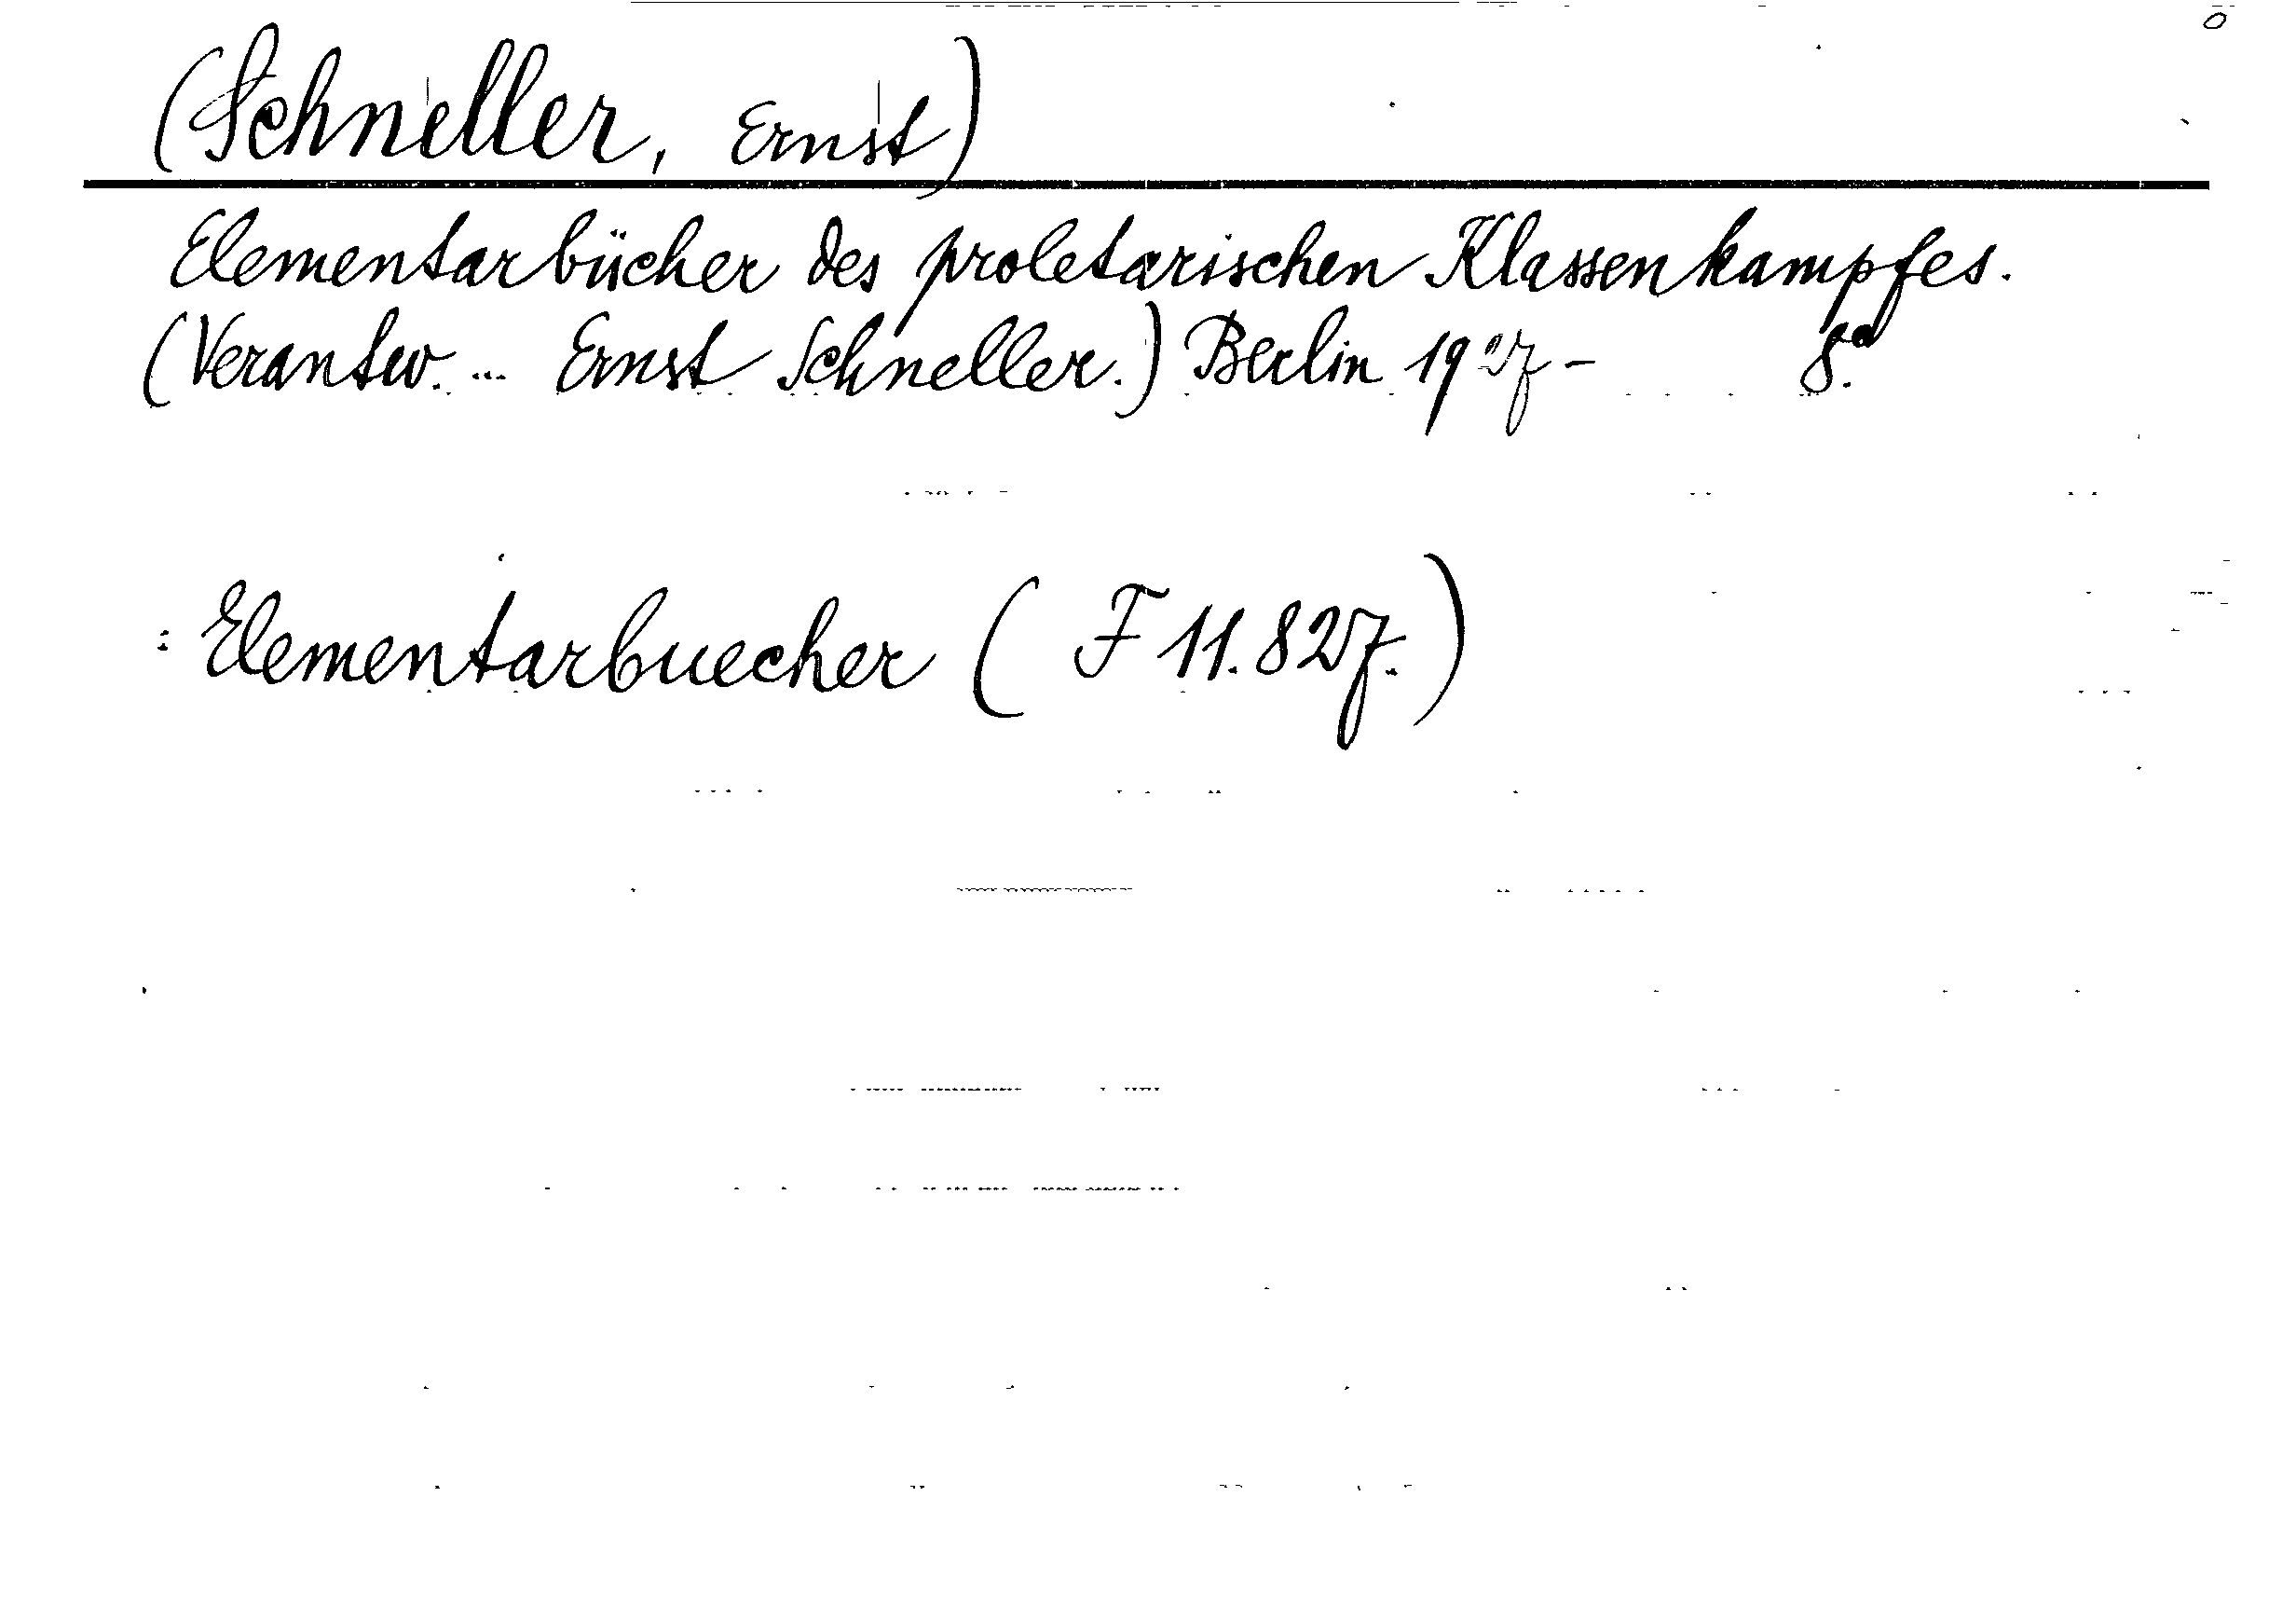 (Schneller, Ernst)
Elementarbücher des proletarischen Klassenkampfes.
(Verantw. ... Ernst Schneller.) Berlin 1927- 8°.
: Elementarbuecher ( F 11.827.)